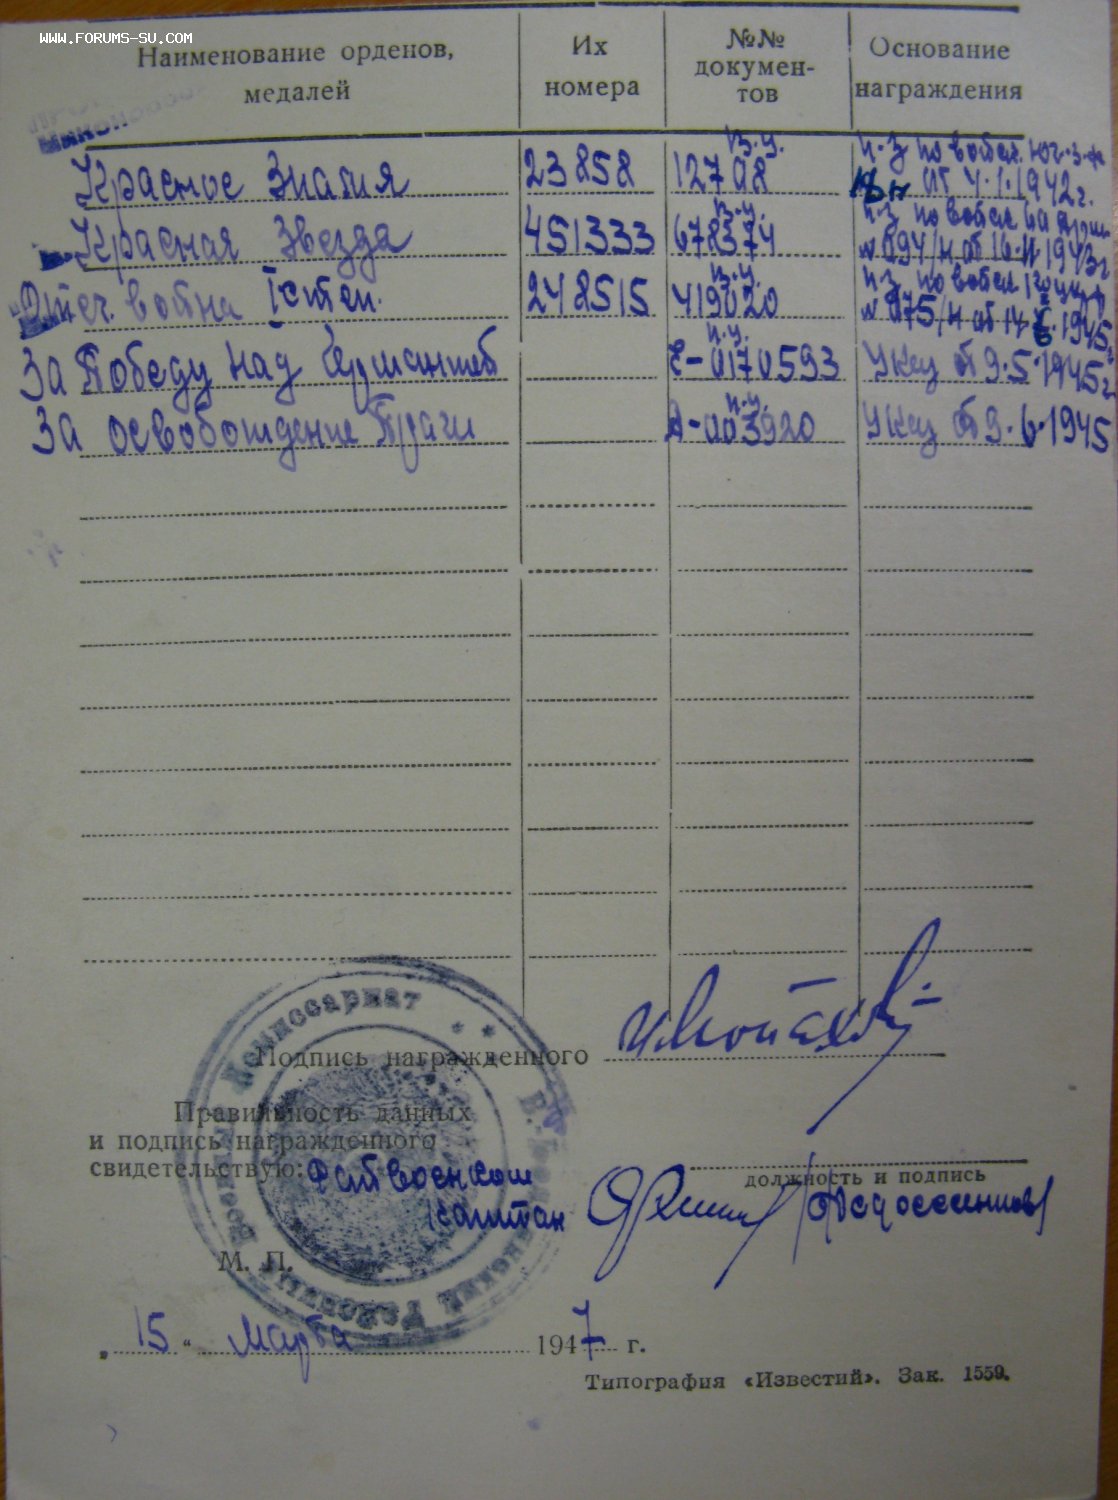 WWW.FORUMS-SU.COM
Наименование орденов, медалей
Их номера
№№ документов
Основание награждения
Красное Знамя 23858 в.у. 12798 п-з по войск. Юг-З-Ф 18н от 4.1.1942г.
Красная Звезда 451333 в.у. 678374 п-з по войск. № 094/н от 16.11.1943г
Отеч. война I степ. 248515 в.у. 419020 п-з по войск. № 075/н от 14 1945
За Победу над Германией п.у. Е-0170593 Указ от 9.5.1945г
За освобождение Праги п.у. А-003920 Указ от 9.6.1945
Подпись награжденного
Правильность данных
и подпись награжденного
свидетельствую: Райвоенком
должность и подпись
капитан
М. П.
Военный Комиссариат
Районный
„15“ Марта 1947 г.
Типография «Известий». Зак. 1559.